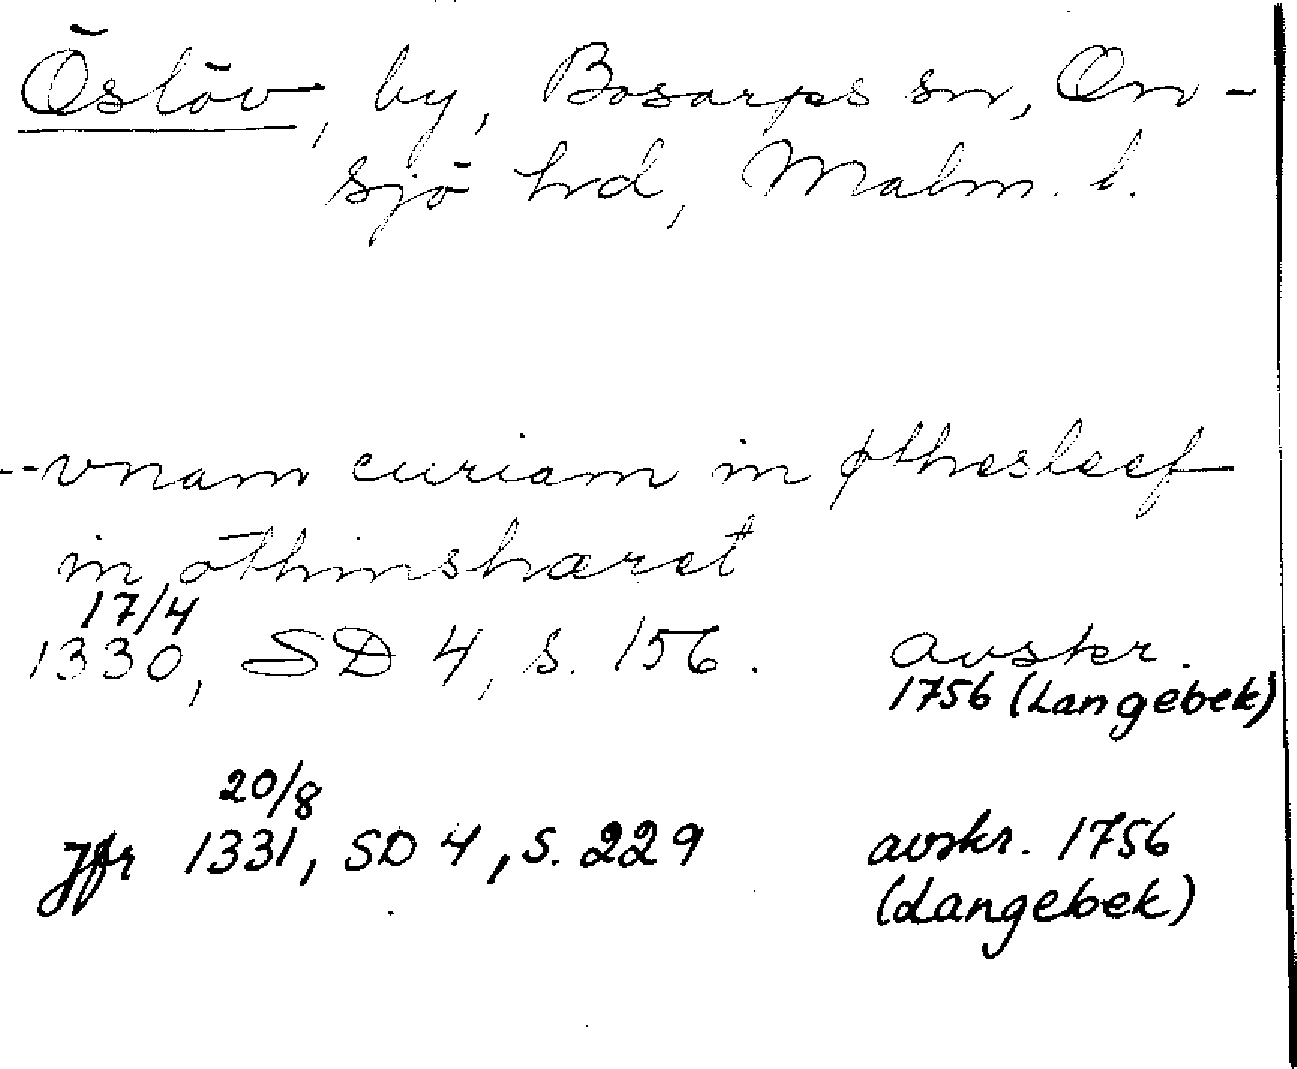 Öslöv, by, Bosarps sn, On-
sjö hd, Malm. l.
--vnam curiam in øthesleef
in othinshæret
17/4
1330, SD 4, s. 156. avskr.
1756 (Langebek)
20/8
Jfr 1331, SD 4, s. 229 avskr. 1756
(Langebek)